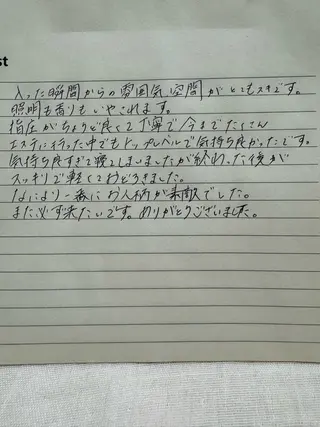 st
入った瞬間からの雰囲気、空間がとてもスキです。
照明も香りもいやされます。
指圧がちょうど良くて丁寧で今までたくさん
エステに行った中でもトップレベルで気持ち良かったです。
気持ち良すぎて寝てしまいましたが終わった後が
スッキリで軽くておどろきました。
なにより一番にお人柄が素敵でした。
また必ず来たいです。ありがとうございました。